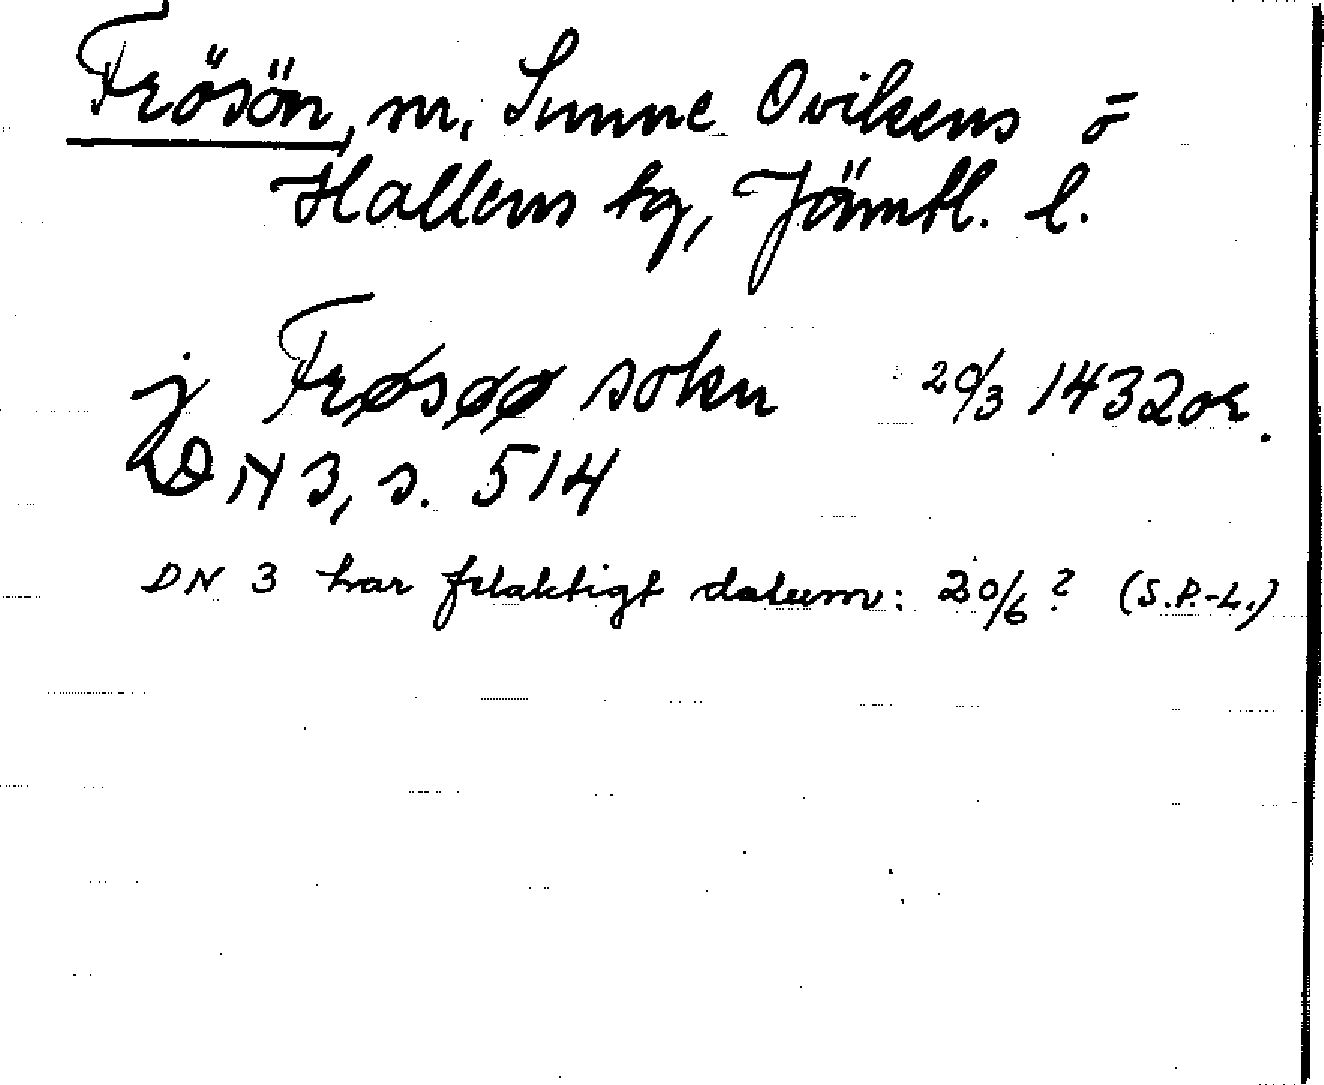 Frösön, sn, Sunne Ovikens o
Hallens tg, Jämtl. l.
j Frøsøø sokn 20/3 1432 or.
DN 3, s. 514
DN 3 har felaktigt datum: 20/6? (S.P.-L.)